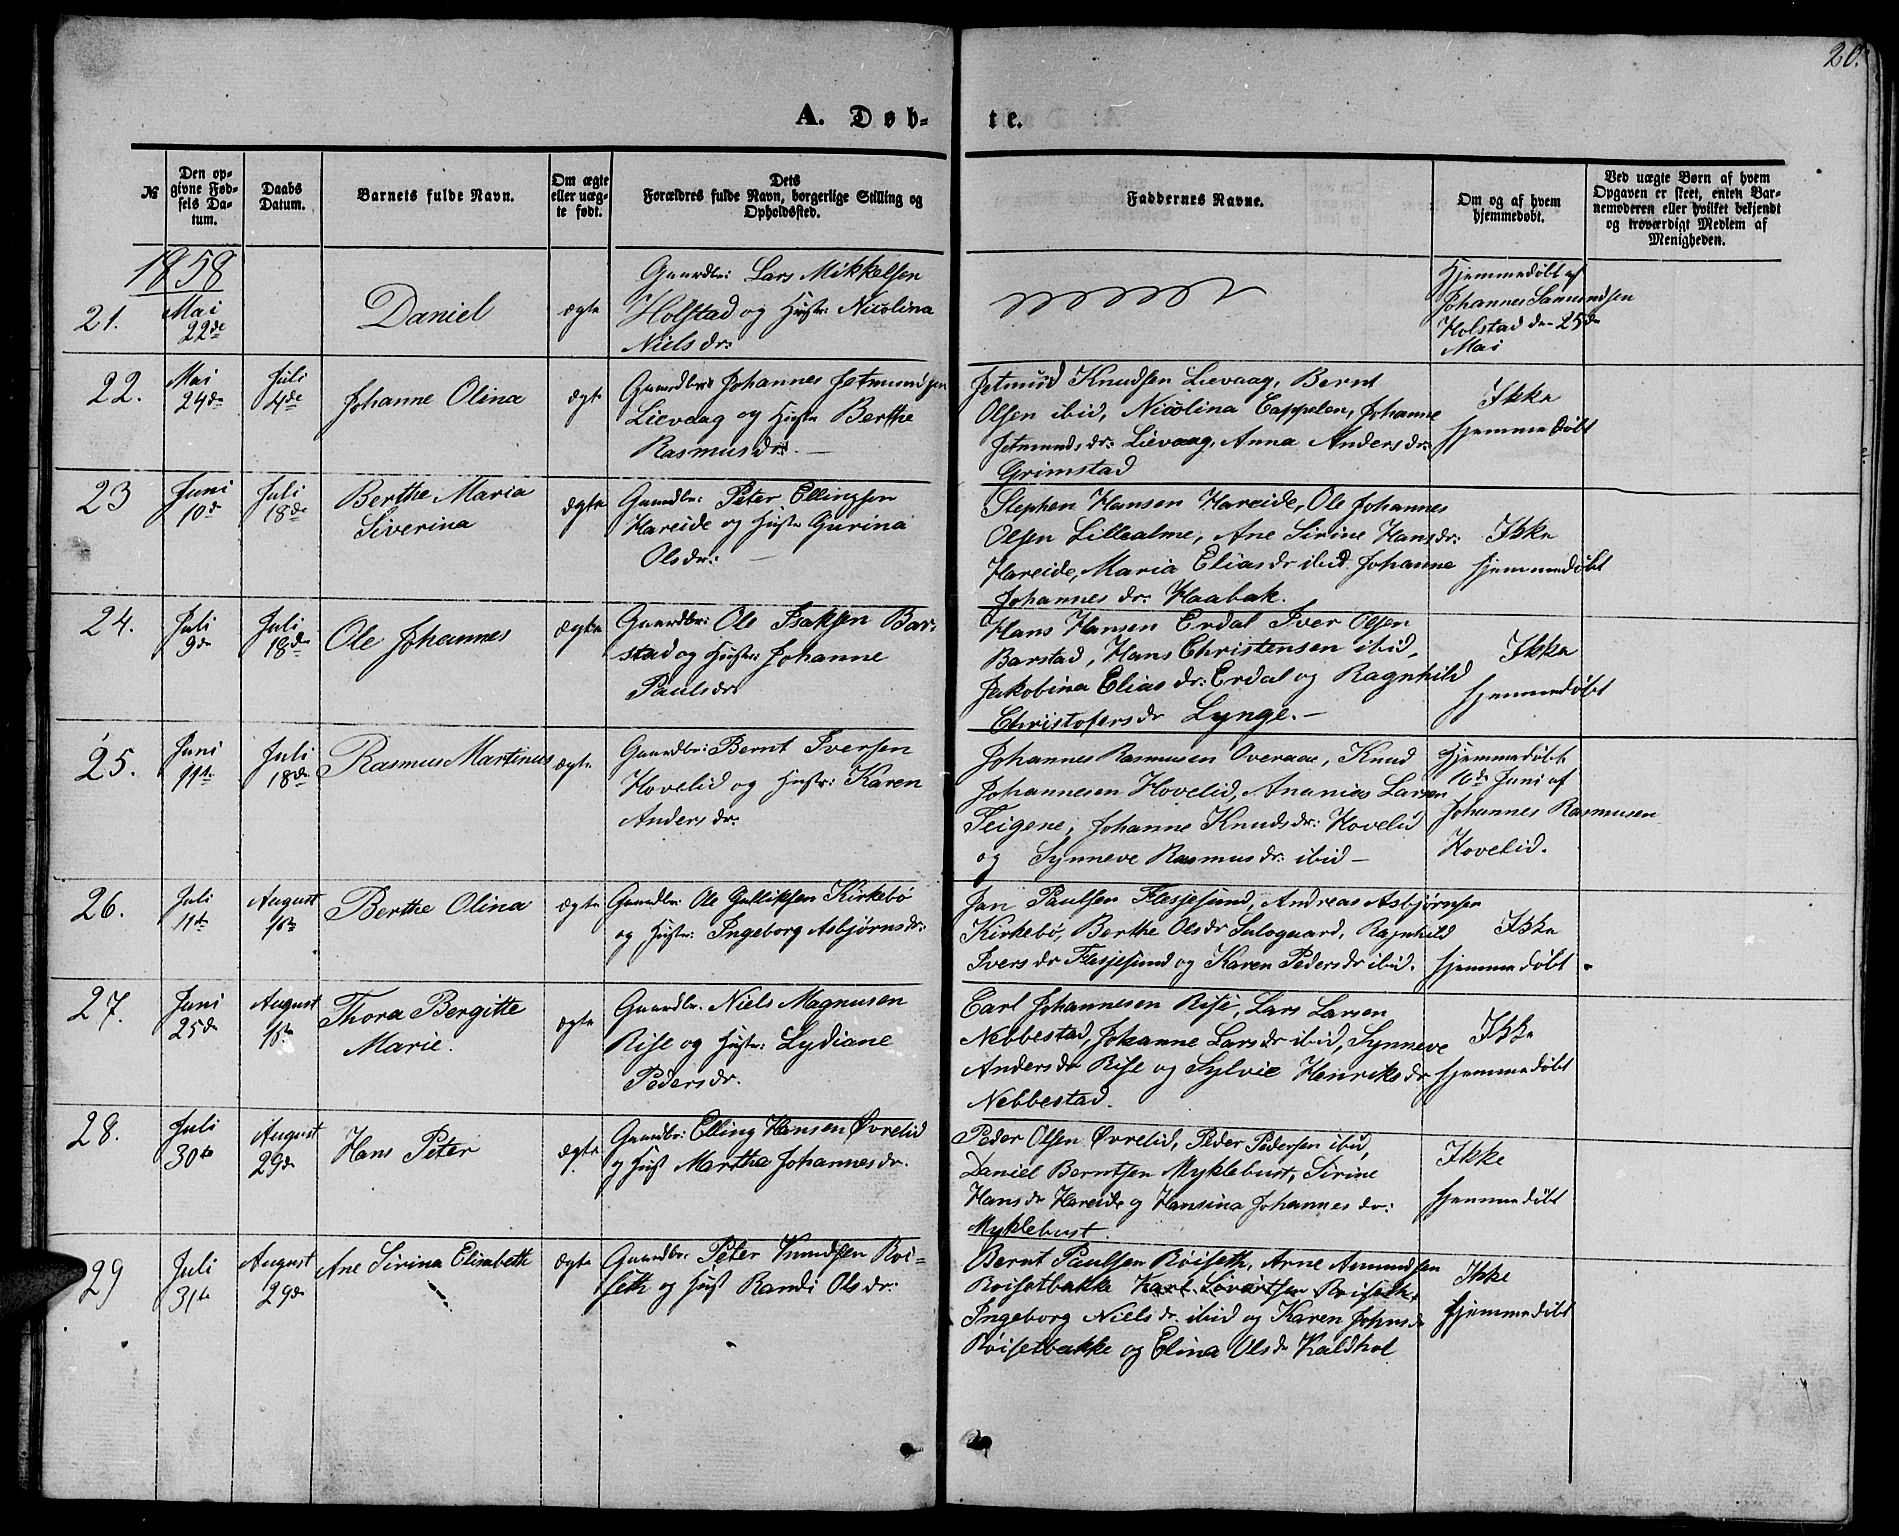 20.
A. Døb-
te.
№
Den op-
givne Fød-
sels Da-
tum.
Daabs
Datum.
Barnets fulde Navn.
Om ægte
eller uæg-
te født.
Dets
Forældres fulde Navn, borgerlige Stilling og
Opholdssted.
Faddernes Navne.
Om og af hvem
hjemmedøbt.
Ved uægte Børn af hvem
Opgaven er skeet, enten Bar-
nemoderen eller hvilket bekjendt
og troværdigt Medlem af
Menigheden.
1858
21.
Mai
22de
Daniel
ægte
Gaardbr: Lars Mikkelsen
Holstad og Hustr: Nicolina
Nielsdr:
Hjemmedøbt af
Johannes Samundsen
Holstad den 25de
Mai
22.
Mai
24de
Juli
4de
Johanne Olina
ægte
Gaardbr: Johannes Jetmundsen
Lievaag og Hustr Berthe
Rasmusdr: —
Jetmund Knudsen Lievaag, Bernt
Olsen ibid, Nicolina Cappelen, Johanne
Jetmundsdr: Lievaag, Anna Andersdr:
Grimstad
Ikke
hjemmedøbt
23
Juni
10de
Juli
18de
Berthe Maria
Siverina
ægte
Gaardbr: Peter Ellingsen
Hareide og Hustr Gurina
Olsdr: —
Stephen Hansen Hareide, Ole Johannes
Olsen Lillealme, Ane Sirine Hansdr:
Hareide, Maria Eliasdr ibid. Johanne
Johannesdr: Haabak.
Ikke
hjemmedøbt
24.
Juli
9de
Juli
18de
Ole Johannes
ægte
Gaardbr: Ole Isaksen Bar-
stad og Hustr: Johanne
Paulsdr
Hans Hansen Erdal Iver Olsen
Barstad, Hans Christensen ibid,
Jakobina Eliasdr: Erdal og Ragnhild
Christofersdr Lynge. —
Ikke
hjemmedøbt
25.
Juni
11te
Juli
18de
Rasmus Martinus
ægte
Gaardbr: Bernt Iversen
Hovelid og Hustr: Karen
Andersdr:
Johannes Rasmusen Overaae, Knud
Johannesen Hovelid, Ananias Larsen
Teigene, Johanne Knudsdr: Hovelid
og Synneve Rasmusdr: ibid —
Hjemmedøbt
16de Juni af
Johannes Rasmusen
Hovelid.
26.
Juli
11te
August
1ste
Berthe Olina
ægte
Gaardbr: Ole Gulliksen Kirkebø
og Hustr: Ingeborg Asbjørnsdr:
Jan Paulsen Flesjesund, Andreas Asbjørnsen
Kirkebø, Berthe Olsdr Sulogaard, Ragnhild
Iversdr Flesjesund og Karen Pedersdr ibid.
Ikke
hjemmedøbt
27.
Juni
25de
August
1ste
Thora Bergitte
Marie.
ægte
Gaardbr. Niels Magnusen
Rise og Hustr: Lydiane
Pedersdr.
Carl Johannesen Rise, Lars Larsen
Nebbestad, Johanne Larsdr ibid, Synneve
Andersdr Rise og Sylvie Henriksdr
Nebbestad.
Ikke
hjemmedøbt
28.
Juli
30te
August
29de
Hans Peter
ægte
Gaardbr: Elling Hansen Øvrelid
og Hust Martha Johannesdr.
Peder Olsen Øvrelid, Peder Pedersen ibid,
Daniel Berntsen Myklebust, Sirine
Hansdr Hareide og Hansina Johannesdr:
Myklebust.
Ikke
hjemmedøbt
29
Juli
31te
August
29de
Ane Sirina Elisabeth
ægte
Gaardbr: Peter Knudsen Röi-
seth og Hust Randi Olsdr:
Bernt Paulsen Röiseth, Arne Amundsen
Roisetbakke Karl Sivertsen Roiseth,
Ingeborg Nielsdr. ibid og Karen Johnsdr
Röisetbakke og Elina Olsdr Kaldhol
Ikke
hjemmedøbt